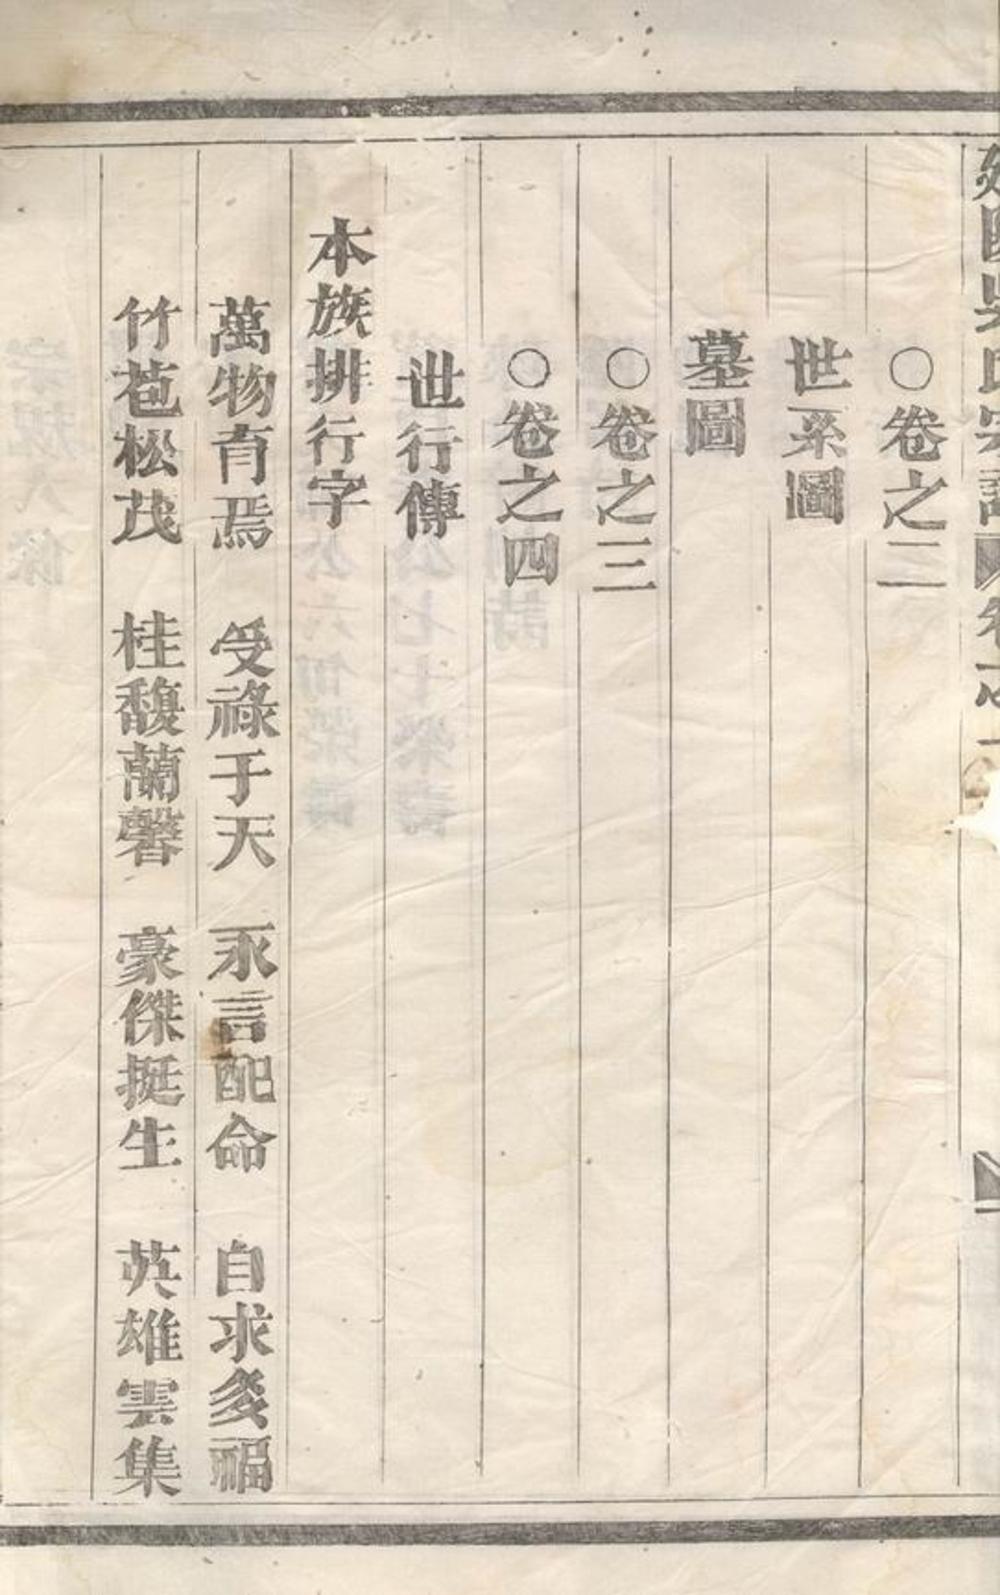 ○卷之二
世系圖
墓圖
○卷之三
○卷之四
世行傳
本族排行字
萬物育焉 受祿于天 永言配命 自求多福
竹苞松茂 桂馥蘭馨 豪傑挺生 英雄雲集